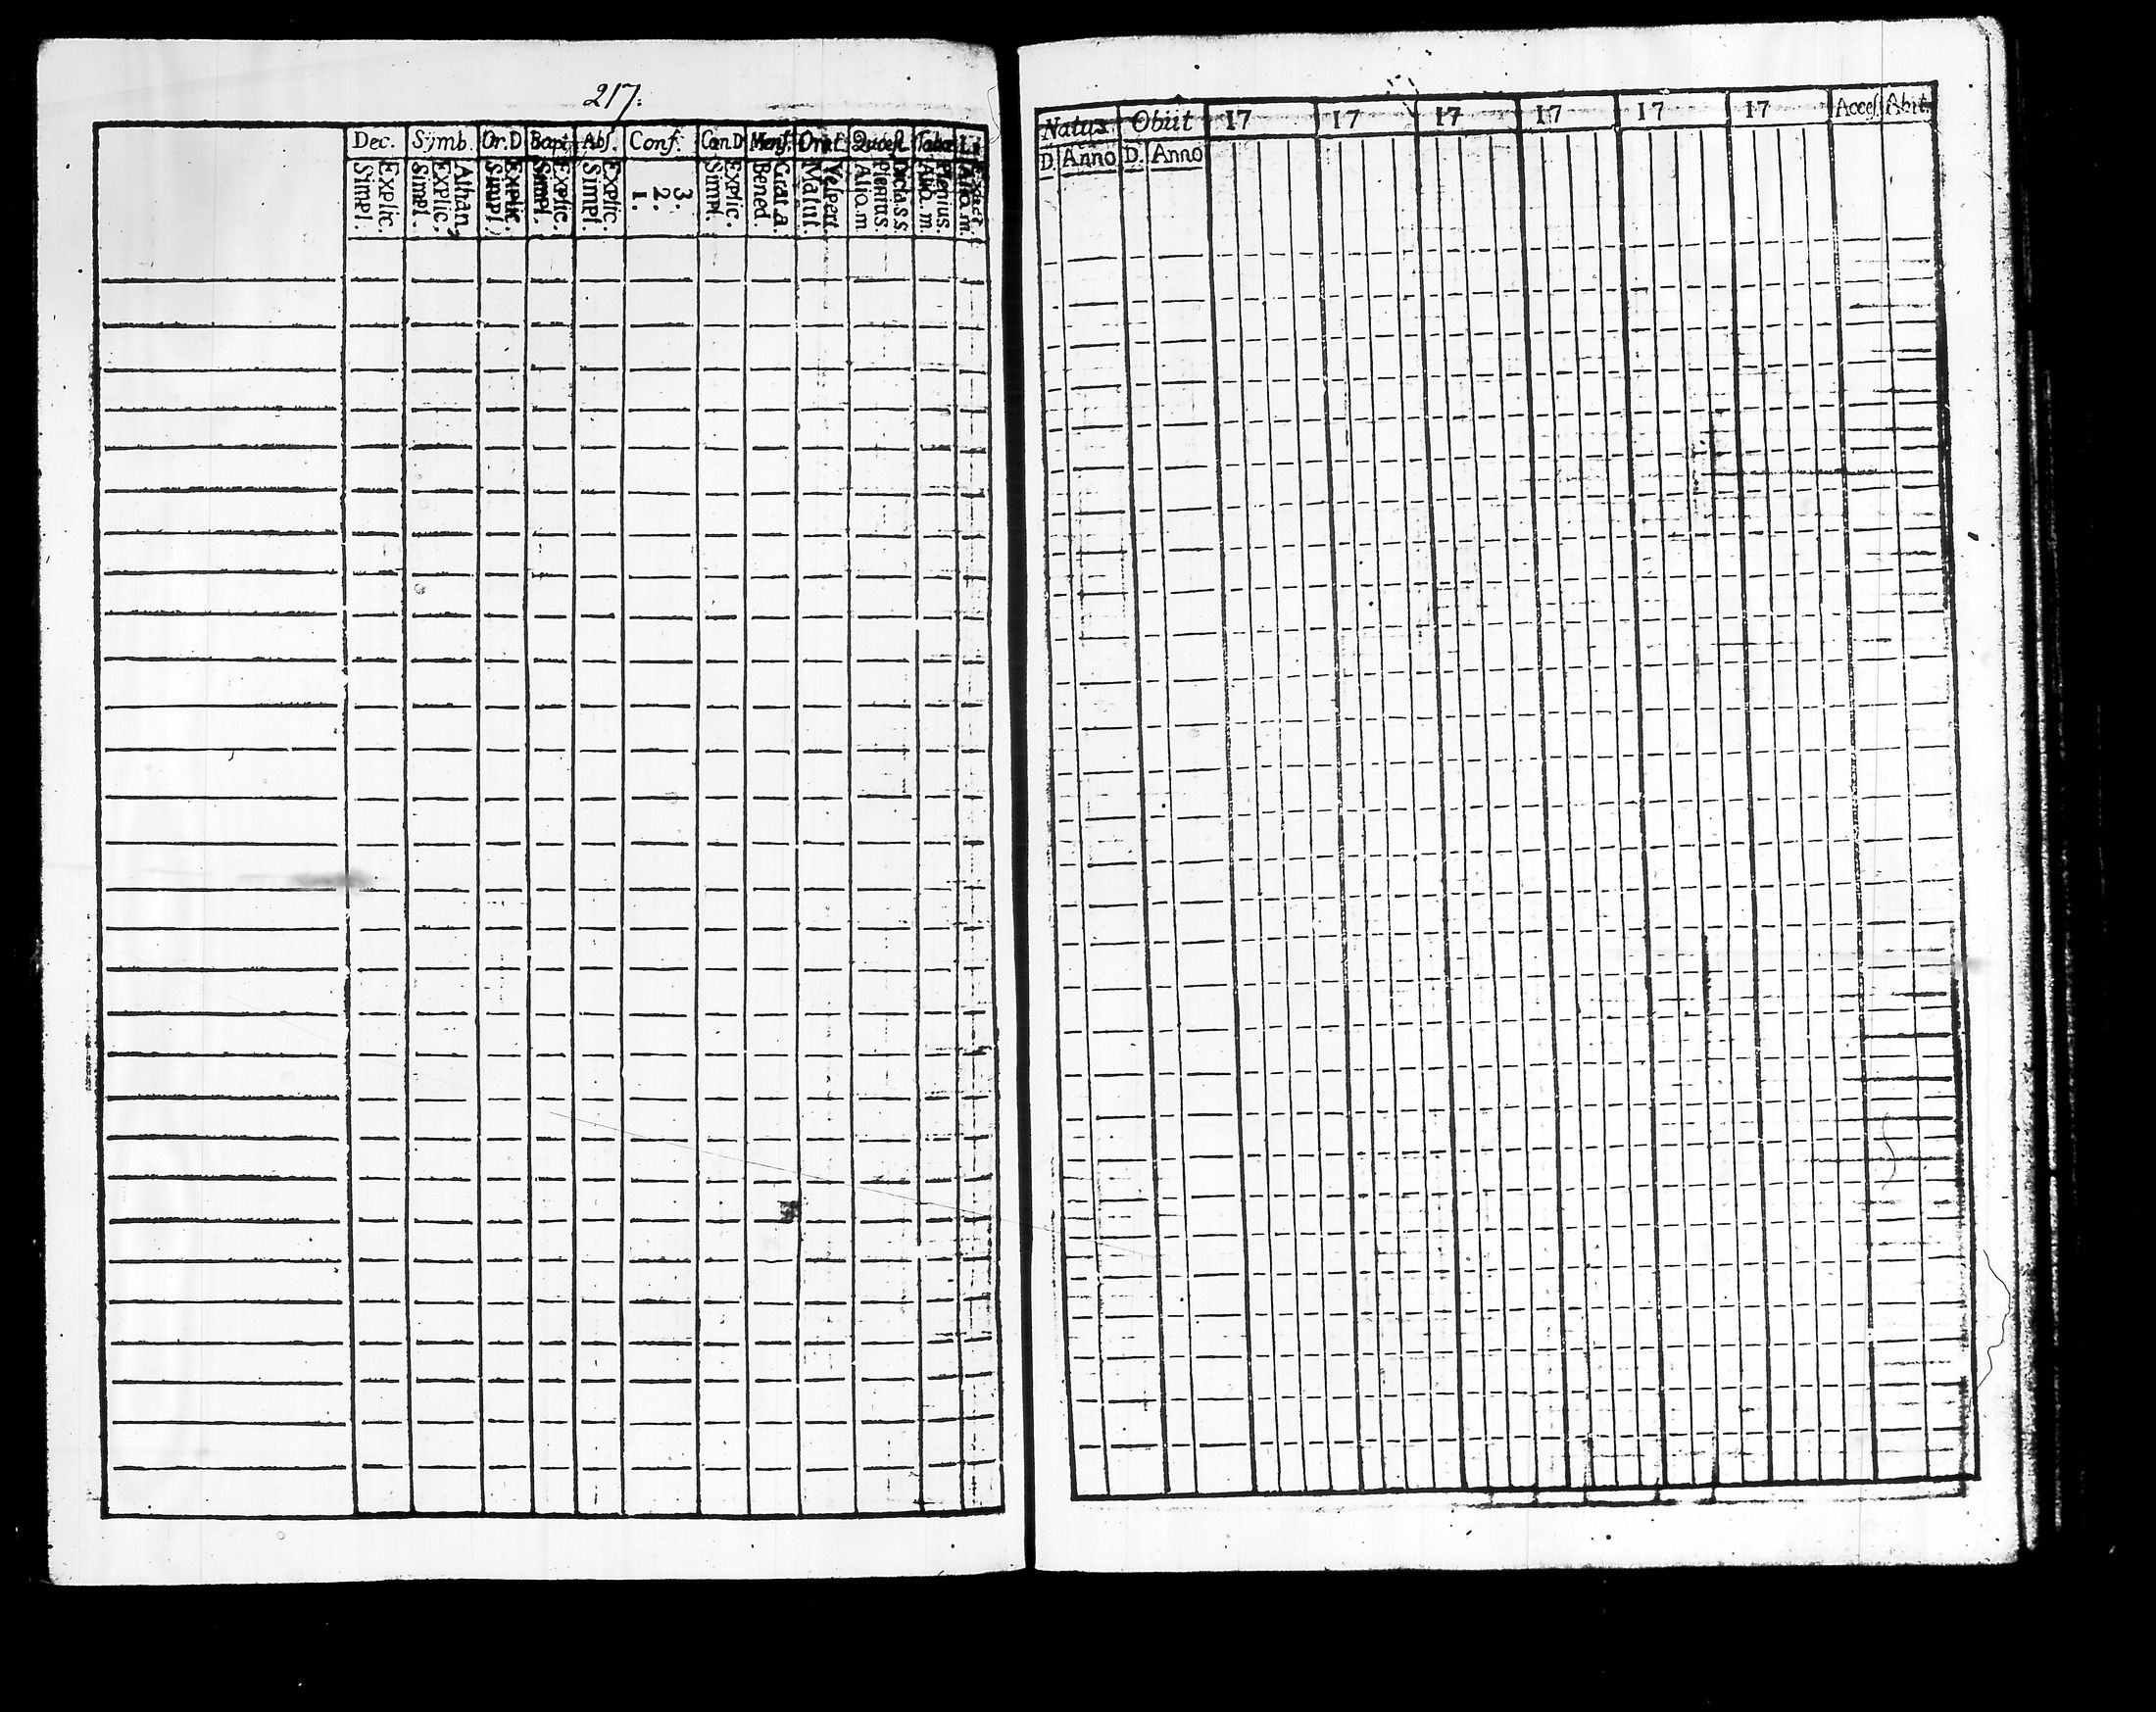 217.
Dec. Symb. Or.D Bapt. Abs. Conf. Can.D Mens. Orat. Quaest. Tabu.
Explic. Simpl.
Athan. Explic. Simpl.
Explic. Simpl.
Explic. Simpl.
Explic. Simpl.
3. 2. 1.
Explic. Simpl.
Grat.a. Bened.
Vespert. Matut.
Dicta S.S. Plenius. Aliq.m.
Plenius. Aliq.m.
Exact. Aliq.m.
Natus Obiit 17 17 17 17 17 17 Access. Abit.
D. Anno D. Anno